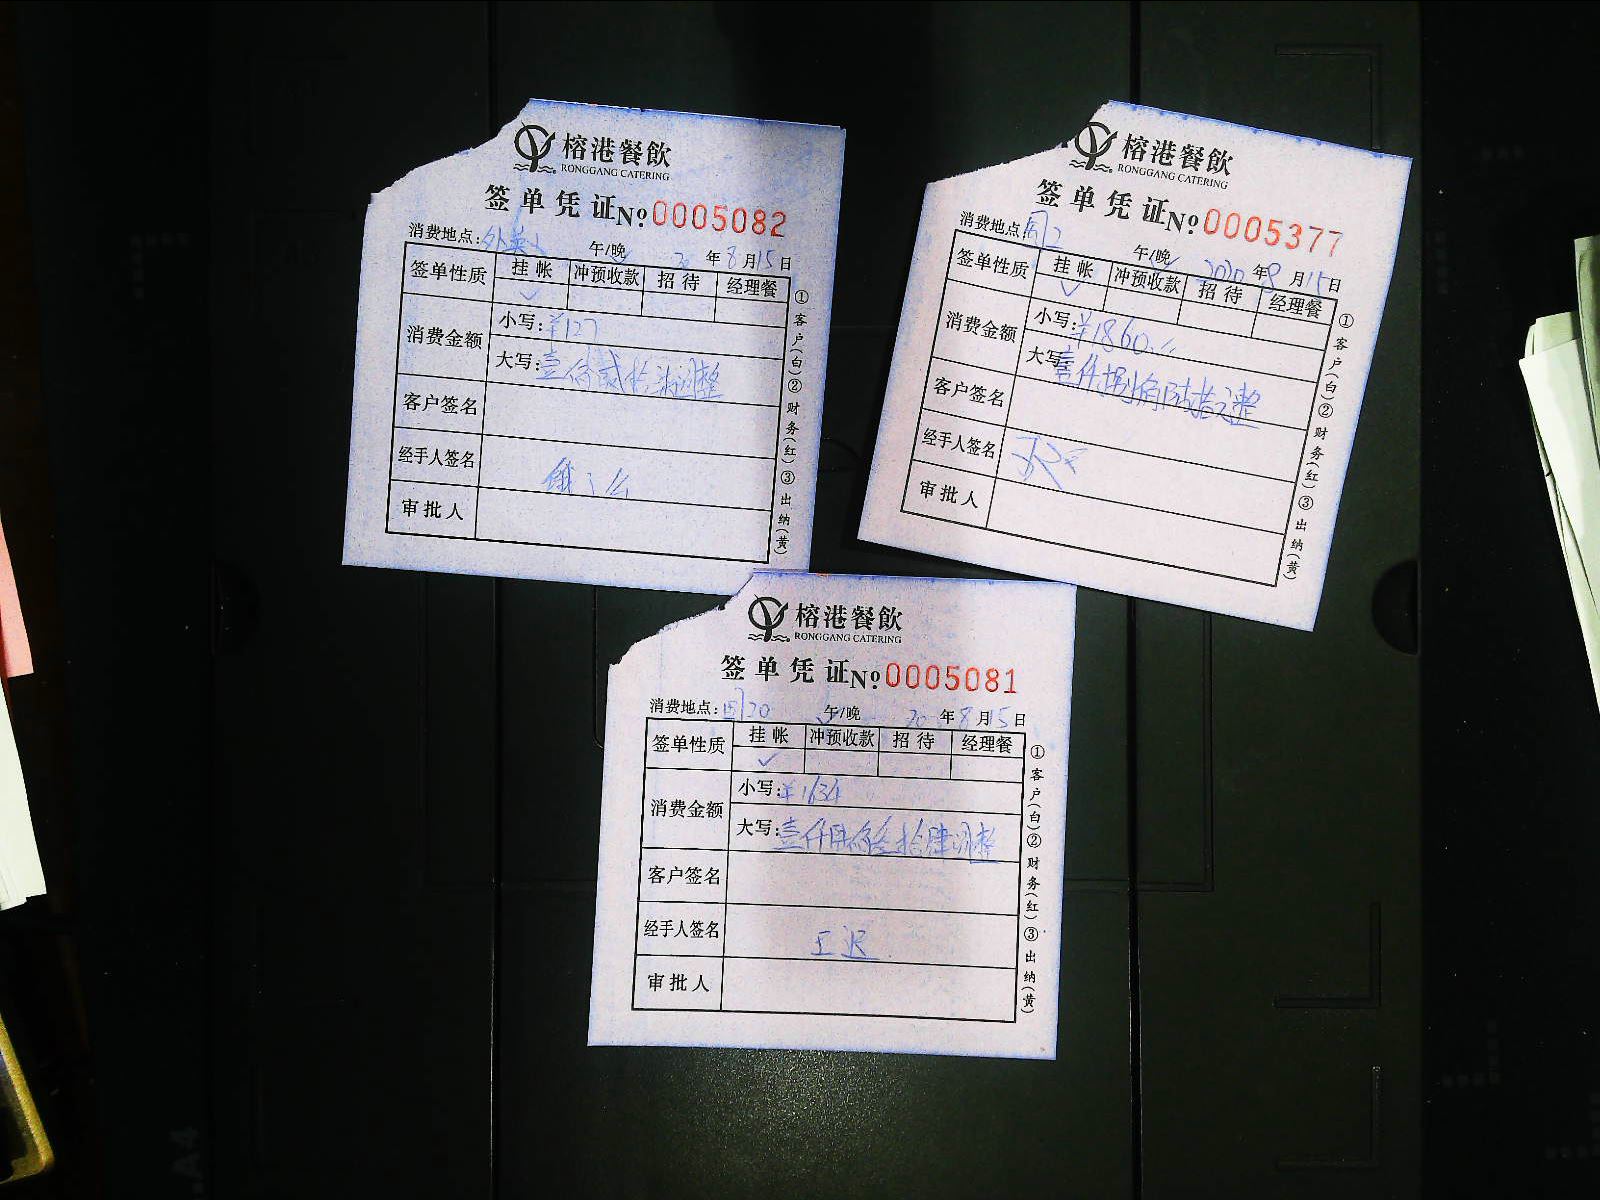 榕港餐飲
RONGGANG CATERING
签单凭证№0005082
消费地点: 午/晚 20 年8月15日
签单性质 挂帐 冲预收款 招待 经理餐
✓
消费金额 小写:¥127
大写:壹佰贰拾柒圆整
客户签名
经手人签名
审批人
①客户(白)②财务(红)③出纳(黄)
榕港餐飲
RONGGANG CATERING
签单凭证№0005377
消费地点: 午/晚 2020年8月15日
签单性质 挂帐 冲预收款 招待 经理餐
✓
消费金额 小写:¥1860
大写:壹仟捌佰陆拾元整
客户签名
经手人签名
审批人
①客户(白)②财务(红)③出纳(黄)
榕港餐飲
RONGGANG CATERING
签单凭证№0005081
消费地点: 20 午/晚 20 年8月15日
签单性质 挂帐 冲预收款 招待 经理餐
✓
消费金额 小写:¥1634
大写:壹仟陆佰叁拾肆圆整
客户签名
经手人签名
审批人
①客户(白)②财务(红)③出纳(黄)